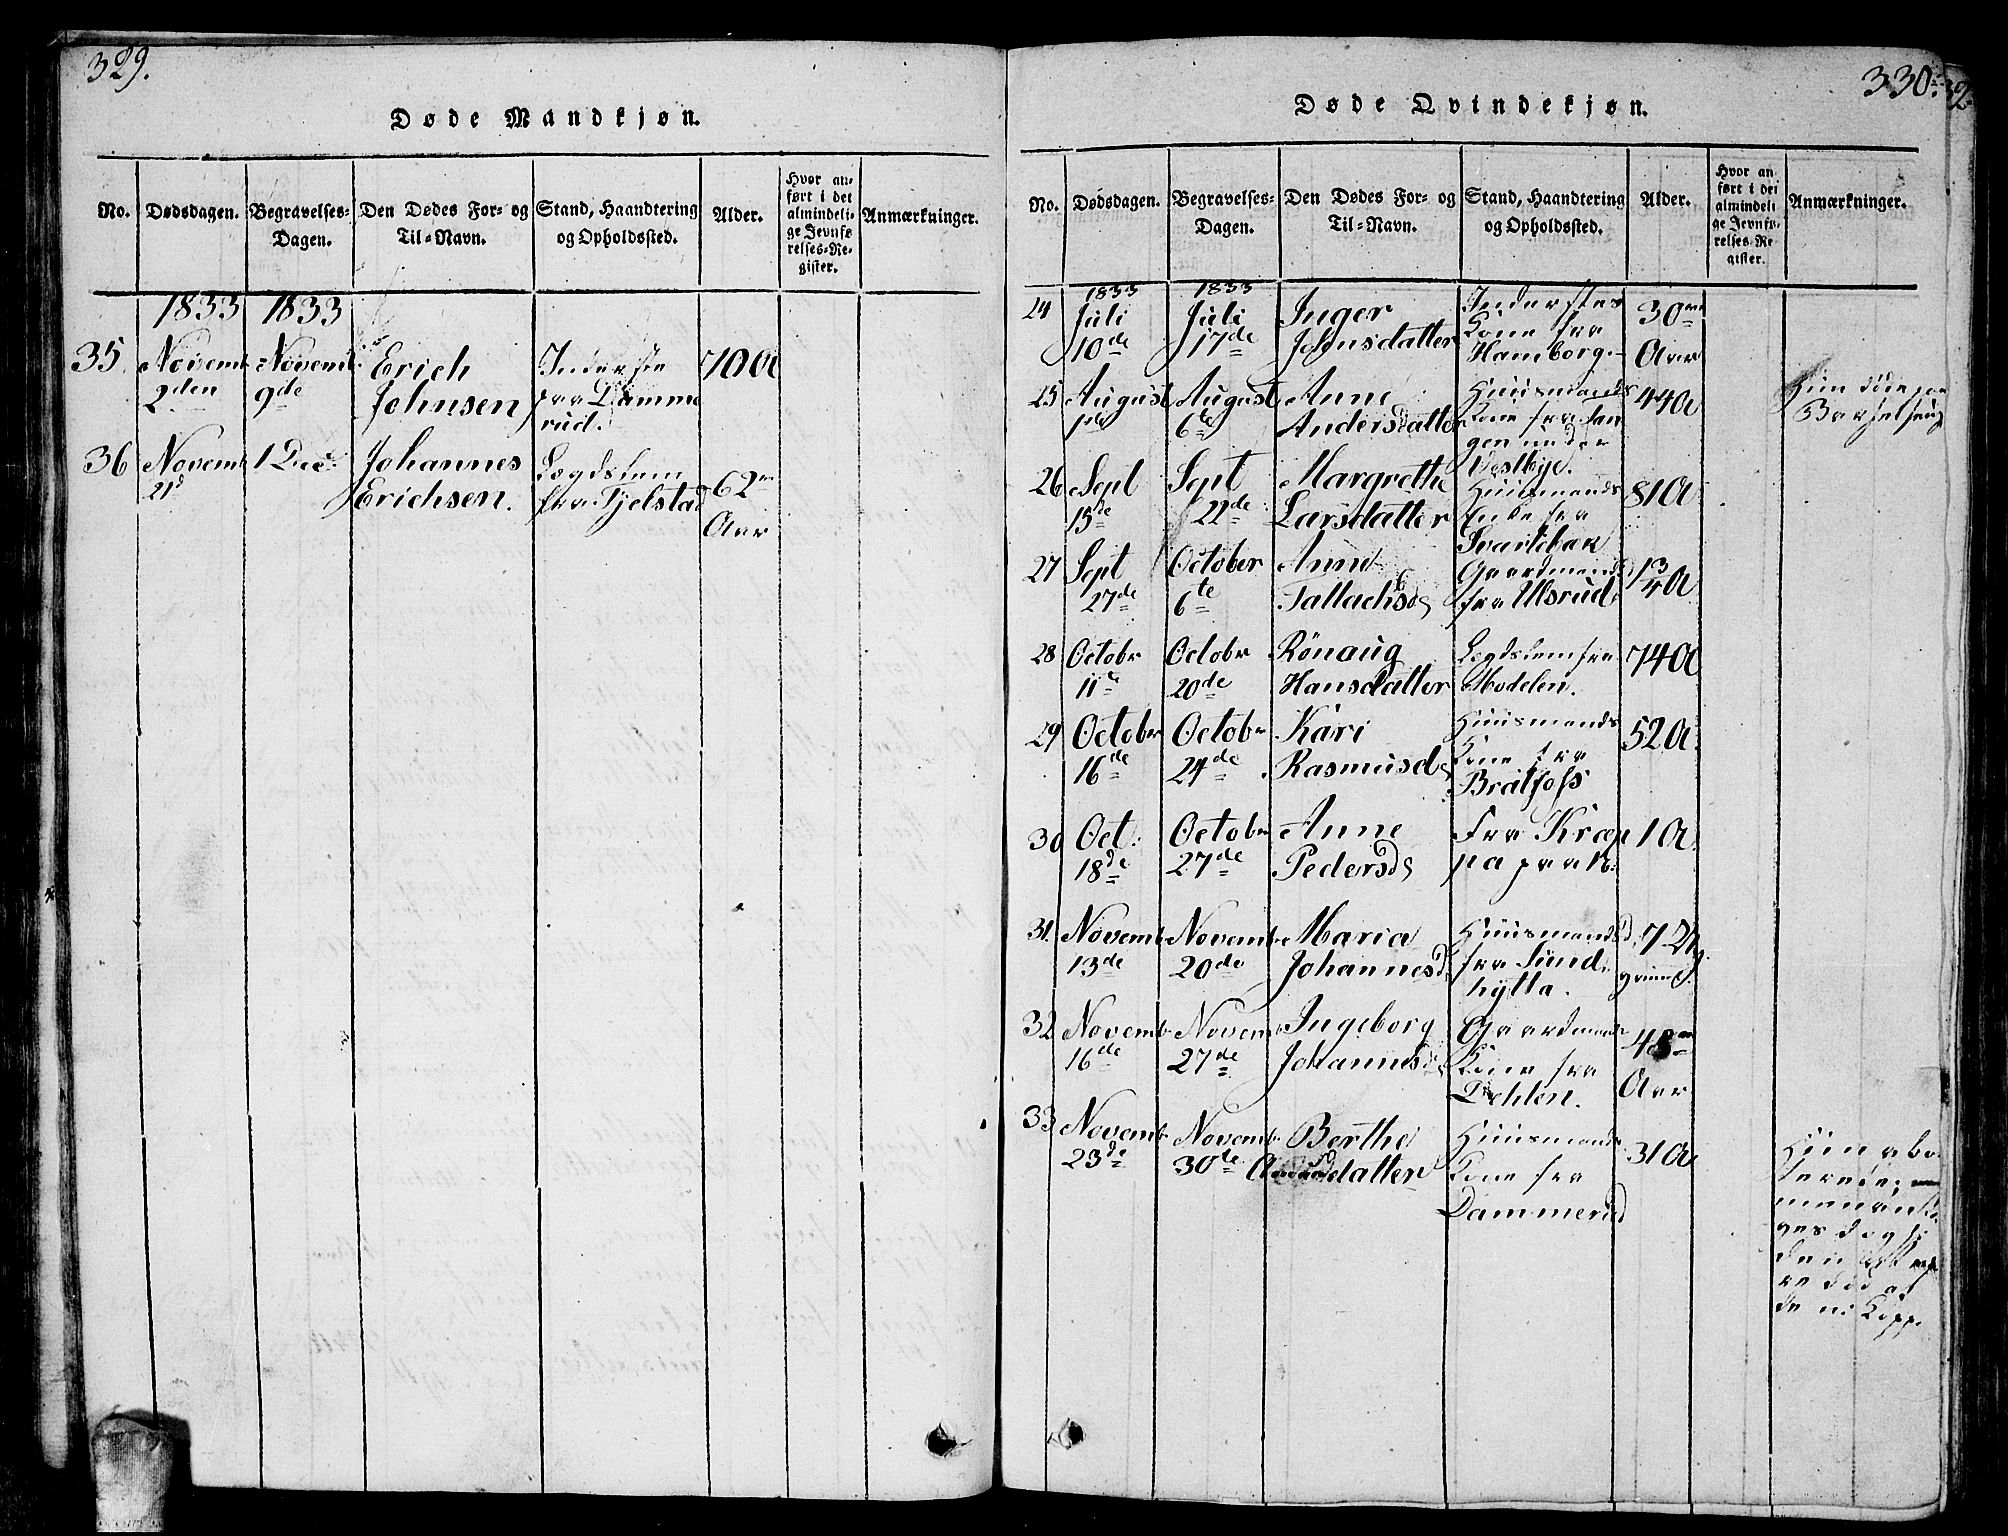 329.
Døde Mandkjøn.
No.
Dødsdagen.
Begravelses-
Dagen.
Den Dødes For- og
Til-Navn.
Stand, Haandtering
og Opholdssted.
Alder.
Hvor an-
ført i det
almindeli-
ge Jevnfø-
relses-Re-
gister.
Anmærkninger.
1833 1833
35 Novemb 2den Novemb 9de Erich Johnsen Inderste fra Damme rud. 70 A
36 Novemb 21d 1 Dec: Johannes Erichsen. Legdslem fra Tjelstad 62 Aar
330.
Døde Qvindekjøn.
No.
Dødsdagen.
Begravelses-
Dagen.
Den Dødes For- og
Til-Navn.
Stand, Haandtering
og Opholdssted.
Alder.
Hvor an-
ført i det
almindeli-
ge Jevnfø-
relses-Re-
gister.
Anmærkninger.
24 1833 Juli 10de 1833 Juli 17de Inger Johnsdatter Inderstes Kone fra Hamborg. 30 Aar
25 August August 6te Anne Andersdatter Huusmands Kone fra under Vestbye. 44 A Hun døde paa Barselseng
26 Sept 15de Sept 22de Margrethe Larsdatter Huusmands Enke fra Svartebak 81 A
27 Sept 27de October 6te Anne Tallachsd Gaardmands fra Ulsrud 1 3/4 A
28 Octobr 11te Octobr 20de Rönaug Hansdatter Legdslem fra Modelen. 74 A
29 Octobr 16de Octobr 24de Kari Rasmusd Huusmands Kone fra Bratfoss 52 A
30 Oct: 18de Octobr 27de Anne Pedersd Fra Kræp pa 1 A
31. Novemb 13de Novemb 20de Maria Johannesd Huusmandsd fra Sund hytta. 7
32 Novemb 16de Novemb 27de Ingeborg Johannesd Gaardmands Kone fra Dehlen. 48 Aar
33 Novemb 23de Novemb 30te Berthe datter Huusmands Kone fra Dammerud 31 A Hun abo terede; men døg si den at være død af de n: Kopp.